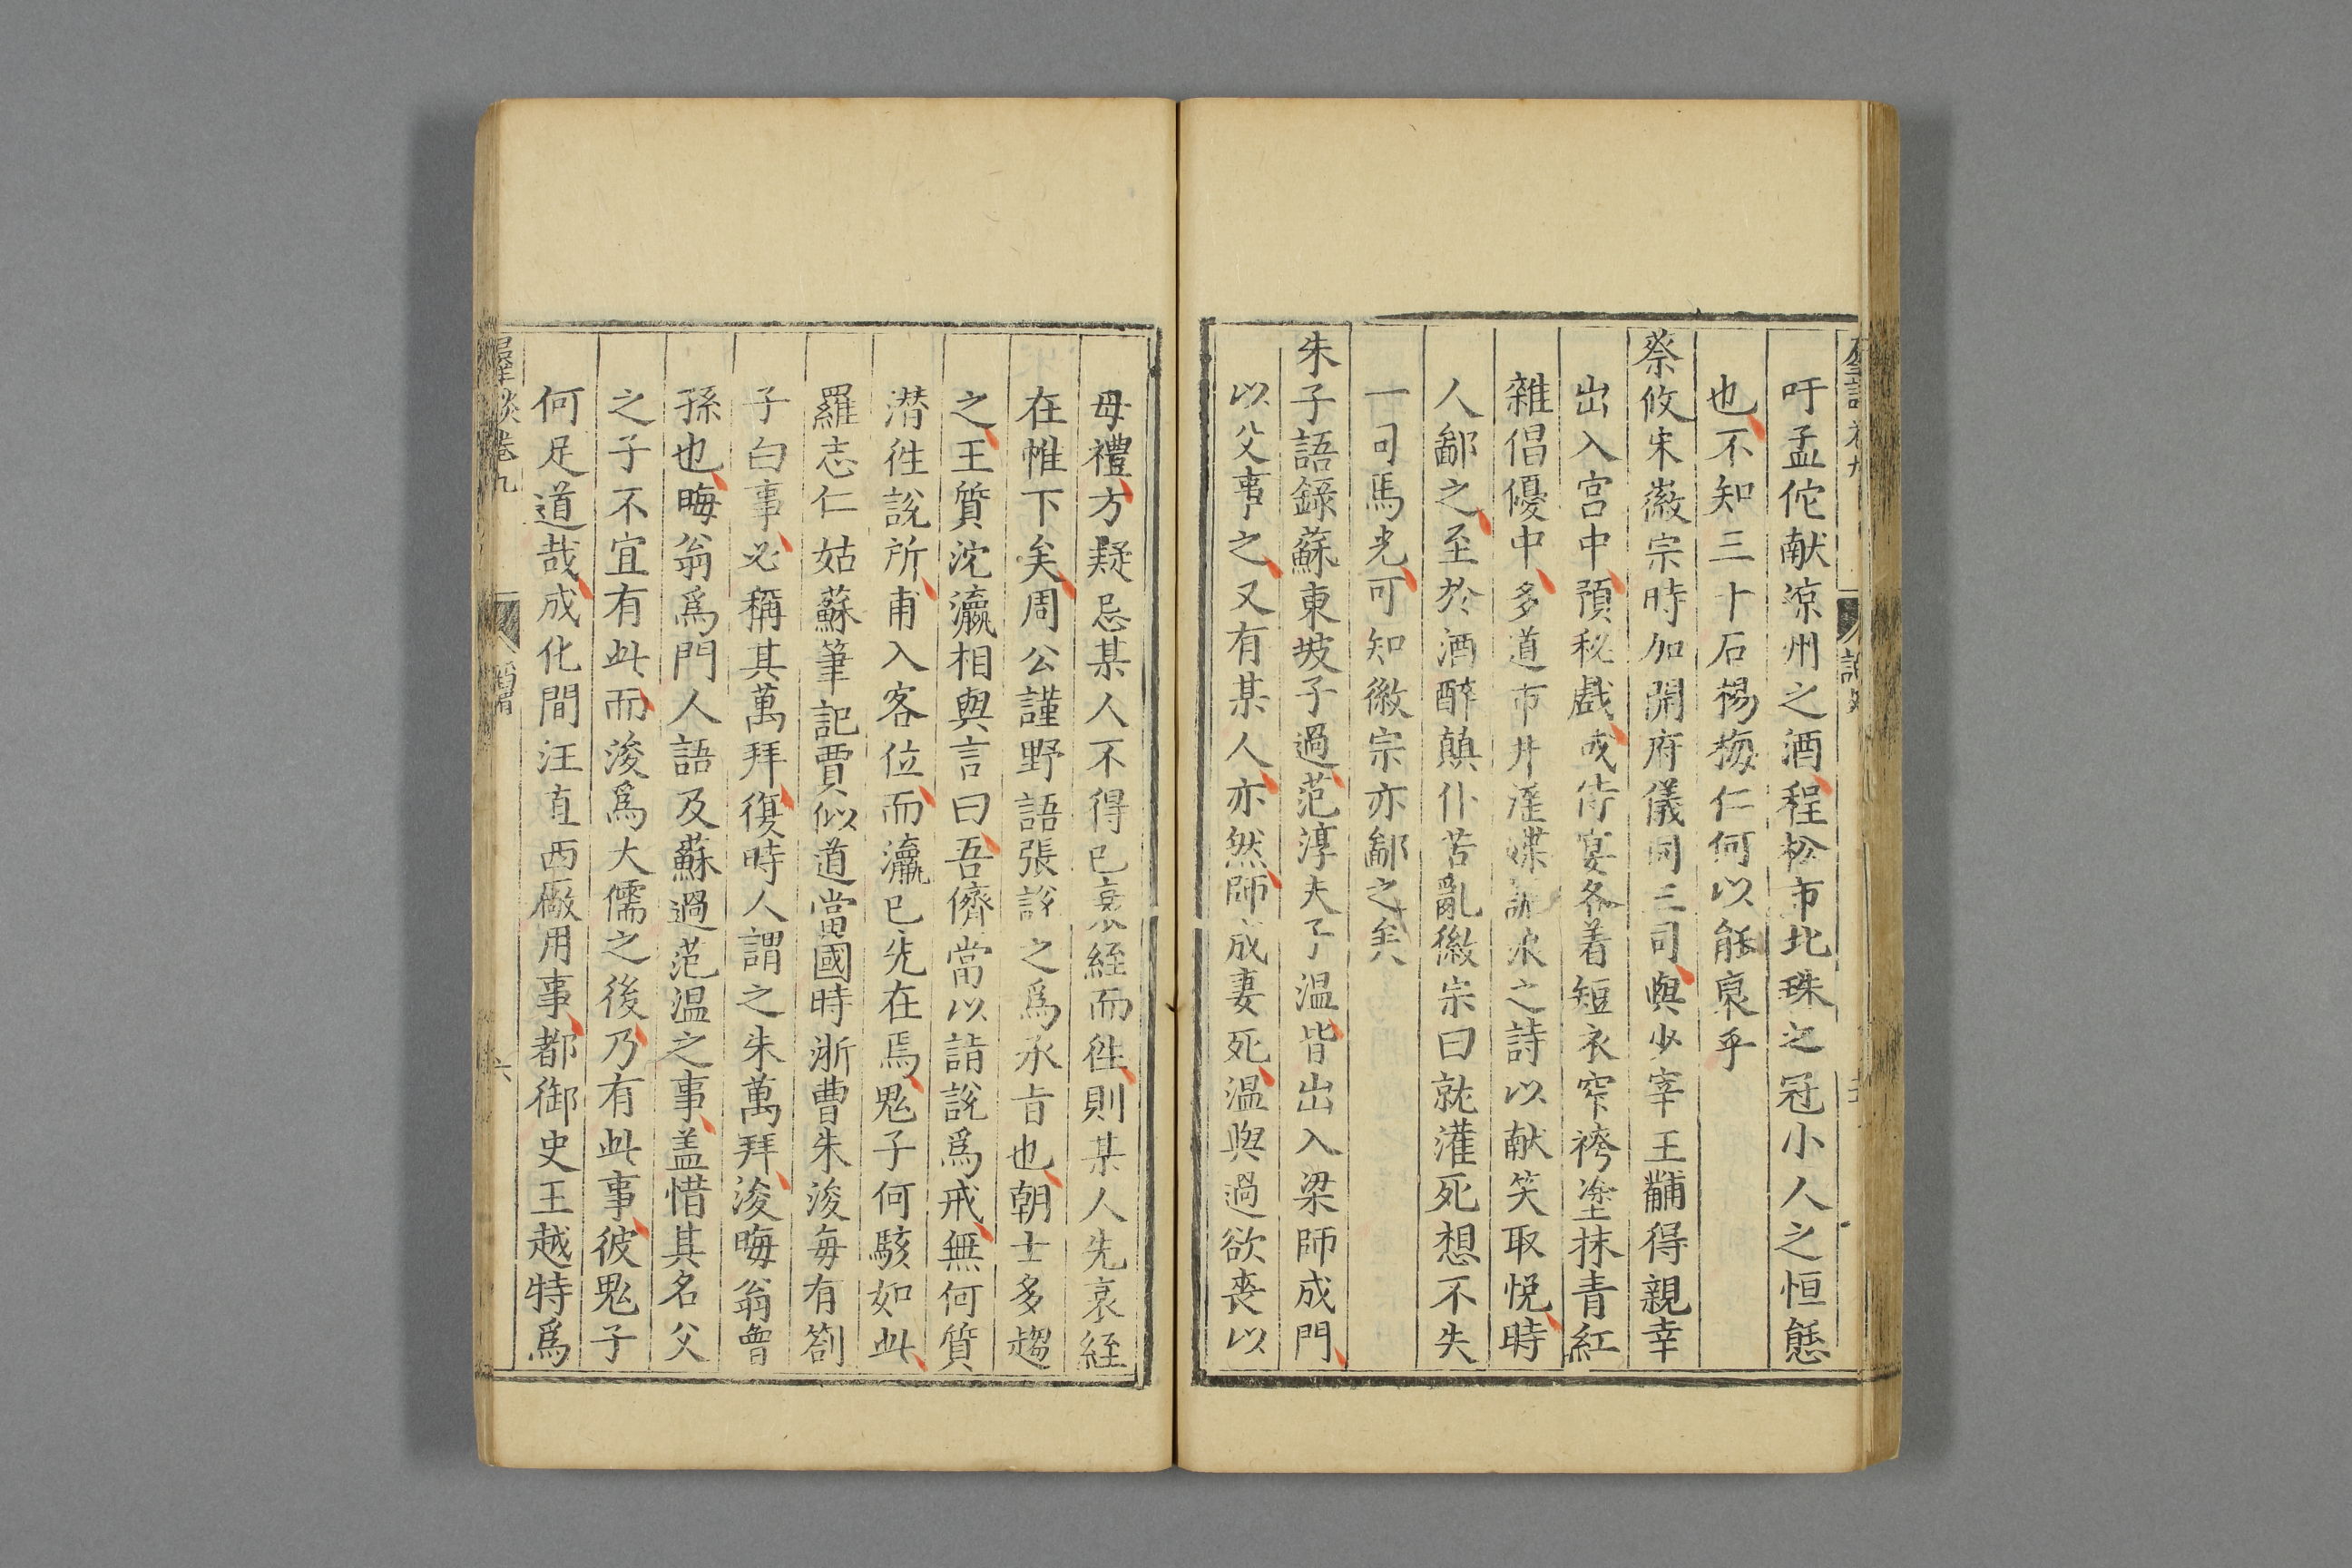 吁孟佗献凉州之酒程松市北珠之冠小人之恒態
也不知三十石楊梅仁何以能裒乎
蔡攸宋徽宗時加開府儀同三司與少宰王黼得親幸
出入宫中預秘戯或侍宴各着短衣窄袴塗抹青紅
雜倡優中多道市井淫媟浪之詩以献笑取悦時
人鄙之至於酒醉顛仆苦亂徽宗曰就灌死想不失
一司馬光可知徽宗亦鄙之矣
朱子語錄蘇東坡子過范淳夫子温皆出入梁師成門
以父事之又有某人亦然師成妻死温與過欲喪以
母禮方疑忌某人不得已衰絰而徃則某人先衰絰
在帷下矣周公謹野語張說之爲承旨也朝士多趨
之王質沈瀛相與言曰吾儕當以詣說爲戒無何質
潜徃說所甫入客位而瀛已先在焉鬼子何駭如此
羅志仁姑蘇筆記賈似道當國時浙曹朱浚每有劄
子白事必稱其萬拜復時人謂之朱萬拜浚晦翁曾
孫也晦翁爲門人語及蘇過范温之事盖惜其名父
之子不宜有此而浚爲大儒之後乃有此事彼鬼子
何足道哉成化間汪直西厰用事都御史王越特爲
卷九
六